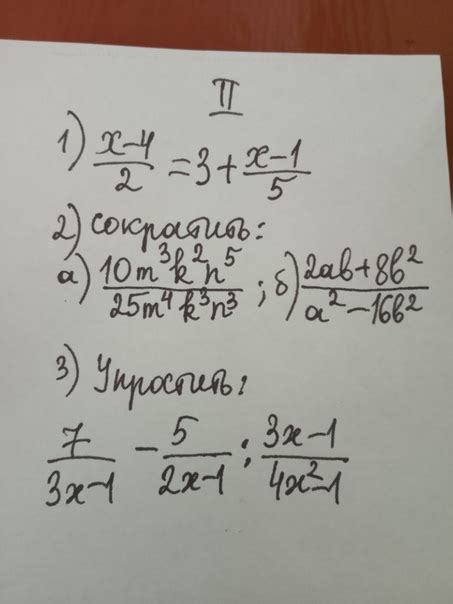 II
1) (x-4)/2 = 3 + (x-1)/5
2) сократить:
а) (10m³k²n⁵)/(25m⁴k³n³) ; б) (2ab+8b²)/(a²-16b²)
3) Упростить:
7/(3x-1) - 5/(2x-1) : (3x-1)/(4x²-1)